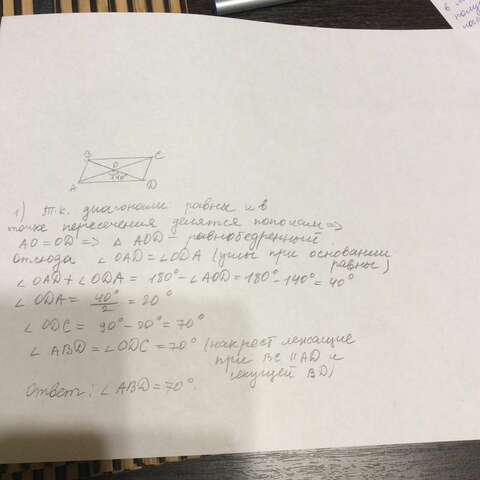 B C
O
140°
A D
1) Т.к. диагонали равны и в
точке пересечения делятся пополам =>
AO = OD => △ AOD - равнобедренный.
Отсюда ∠ OAD = ∠ODA (углы при основании
равны)
∠ OAD + ∠ODA = 180° - ∠AOD = 180° - 140° = 40°
∠ ODA = 40°/2 = 20°
∠ ODC = 90° - 20° = 70°
∠ ABD = ∠ODC = 70° (накрест лежащие
при BC || AD и
секущей BD)
Ответ: ∠ ABD = 70°.